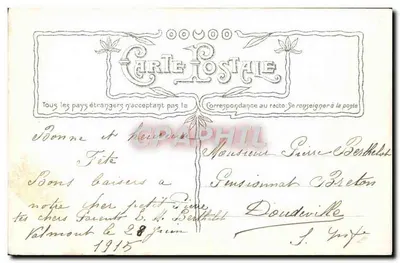 CARTE POSTALE
Tous les pays étrangers n'acceptant pas la Correspondance au recto. Se renseigner à la poste
Bonne et heureuse
Fête
Bons baisers a
notre cher petit Pierre
tes chers Parents L. L. Berthelot
Valmont le 28 Juin
1915
Monsieur Pierre Berthelot
Pensionnat Breton
Doudeville
S. Infre